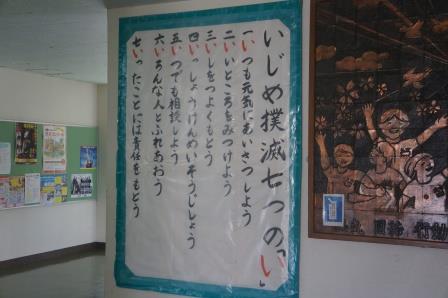 いじめ撲滅七つの「い」
一、いつも元気にあいさつしよう
二、いいところをみつけよう
三、いしをつよくもとう
四、いっしょうけんめいそうじしよう
五、いつでも相談しよう
六、いろんな人とふれあおう
七、いったことには責任をもとう